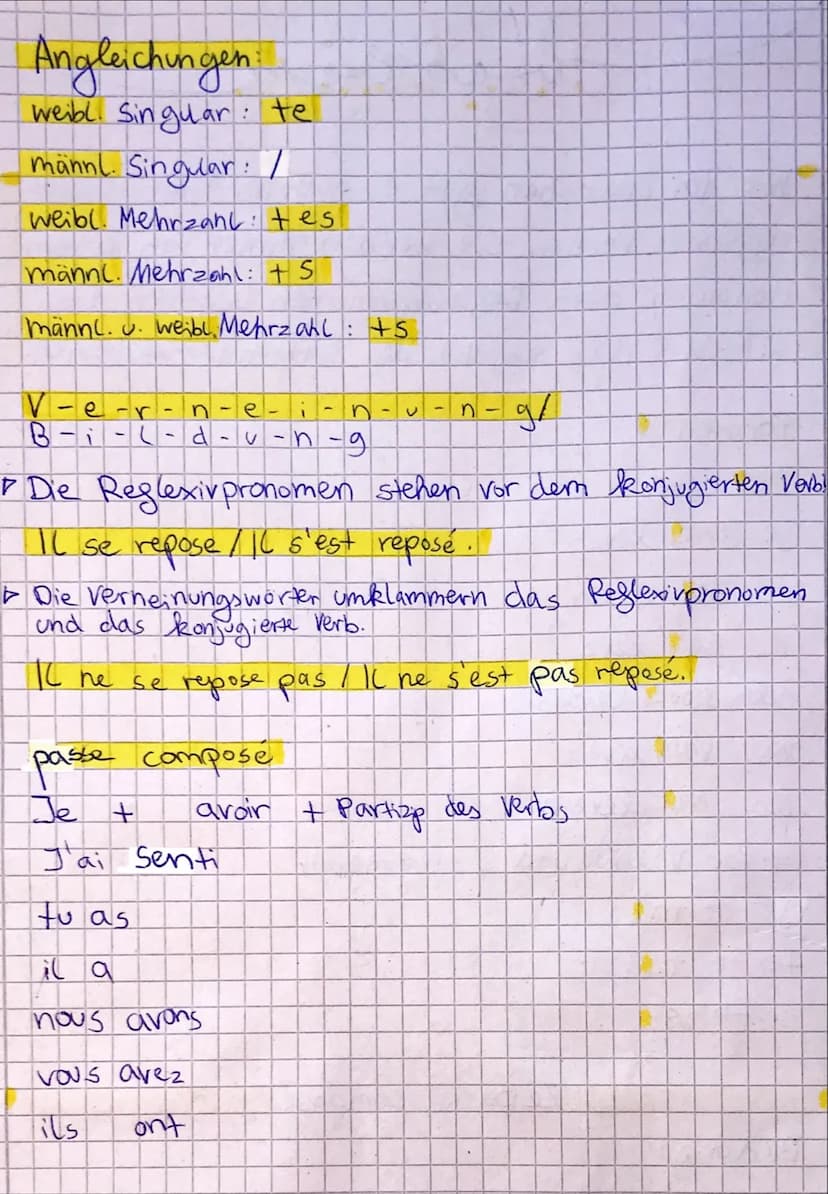 Angleichungen:
weibl. Singular: +e
männl. Singular: /
weibl. Mehrzahl: + es
männl. Mehrzahl: + s
männl. u. weibl. Mehrzahl: +s
V-e-r-n-e-i-n-u-n-g/
B-i-l-d-u-n-g
▷ Die Reflexivpronomen stehen vor dem konjugierten Verb!
Il se repose / Il s'est reposé.
▷ Die Verneinungswörter umklammern das Reflexivpronomen
und das konjugierte Verb.
Il ne se repose pas / Il ne s'est pas reposé.
passe composé
Je + avoir + Partizip des Verbs
J'ai senti
tu as
il a
nous avons
vous avez
ils ont